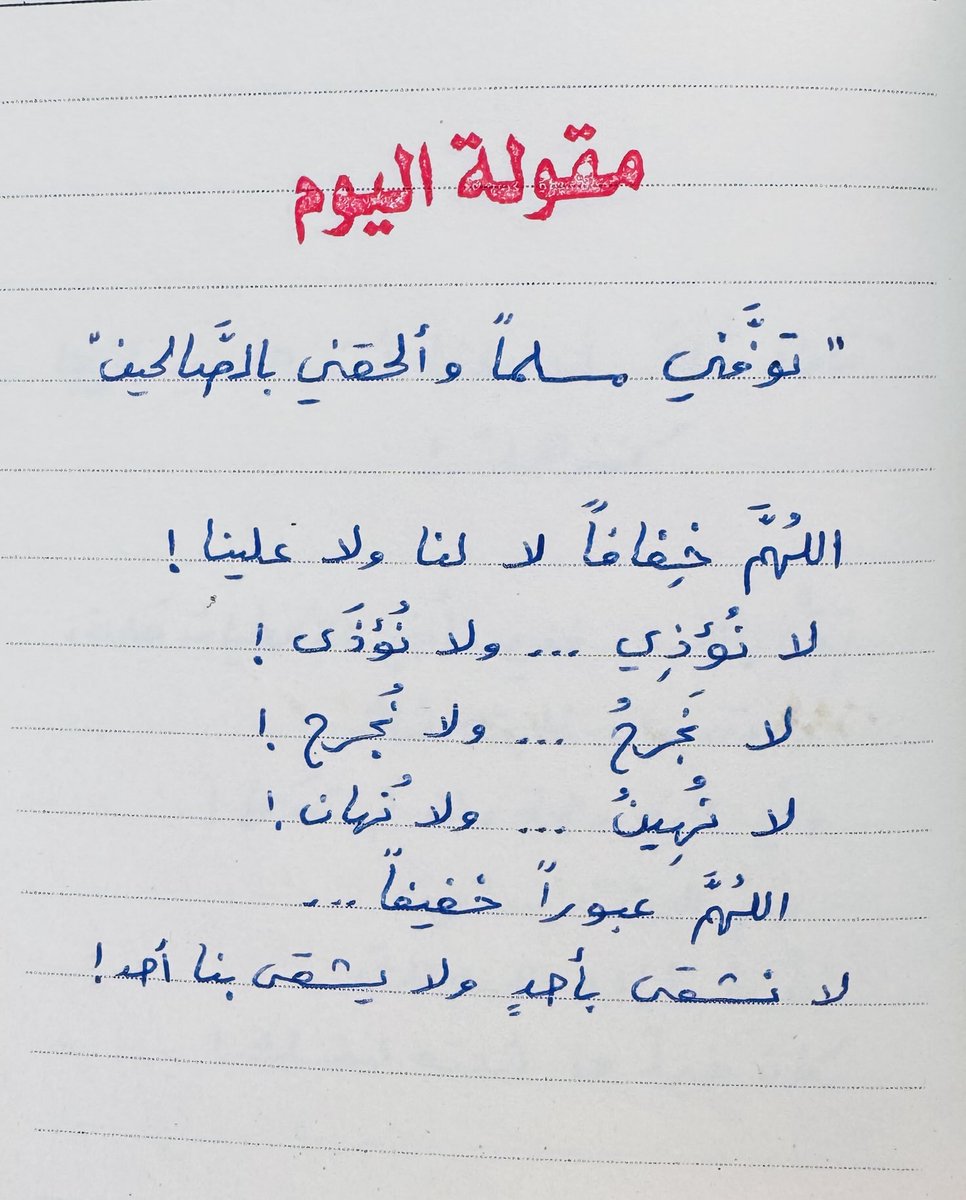 مقولة اليوم
" توفَّني مسلماً وألحقني بالصَّالحين "
اللهُمَّ خِفافاً لا لنا ولا علينا !
لا نُؤذِي ... ولا نُؤذَى !
لا نَجرحُ ... ولا نُجرح !
لا نُهِينُ ... ولا نُهان !
اللهُمَّ عبوراً خفيفاً ...
لا نشقى بأحدٍ ولا يشقى بنا أحد !